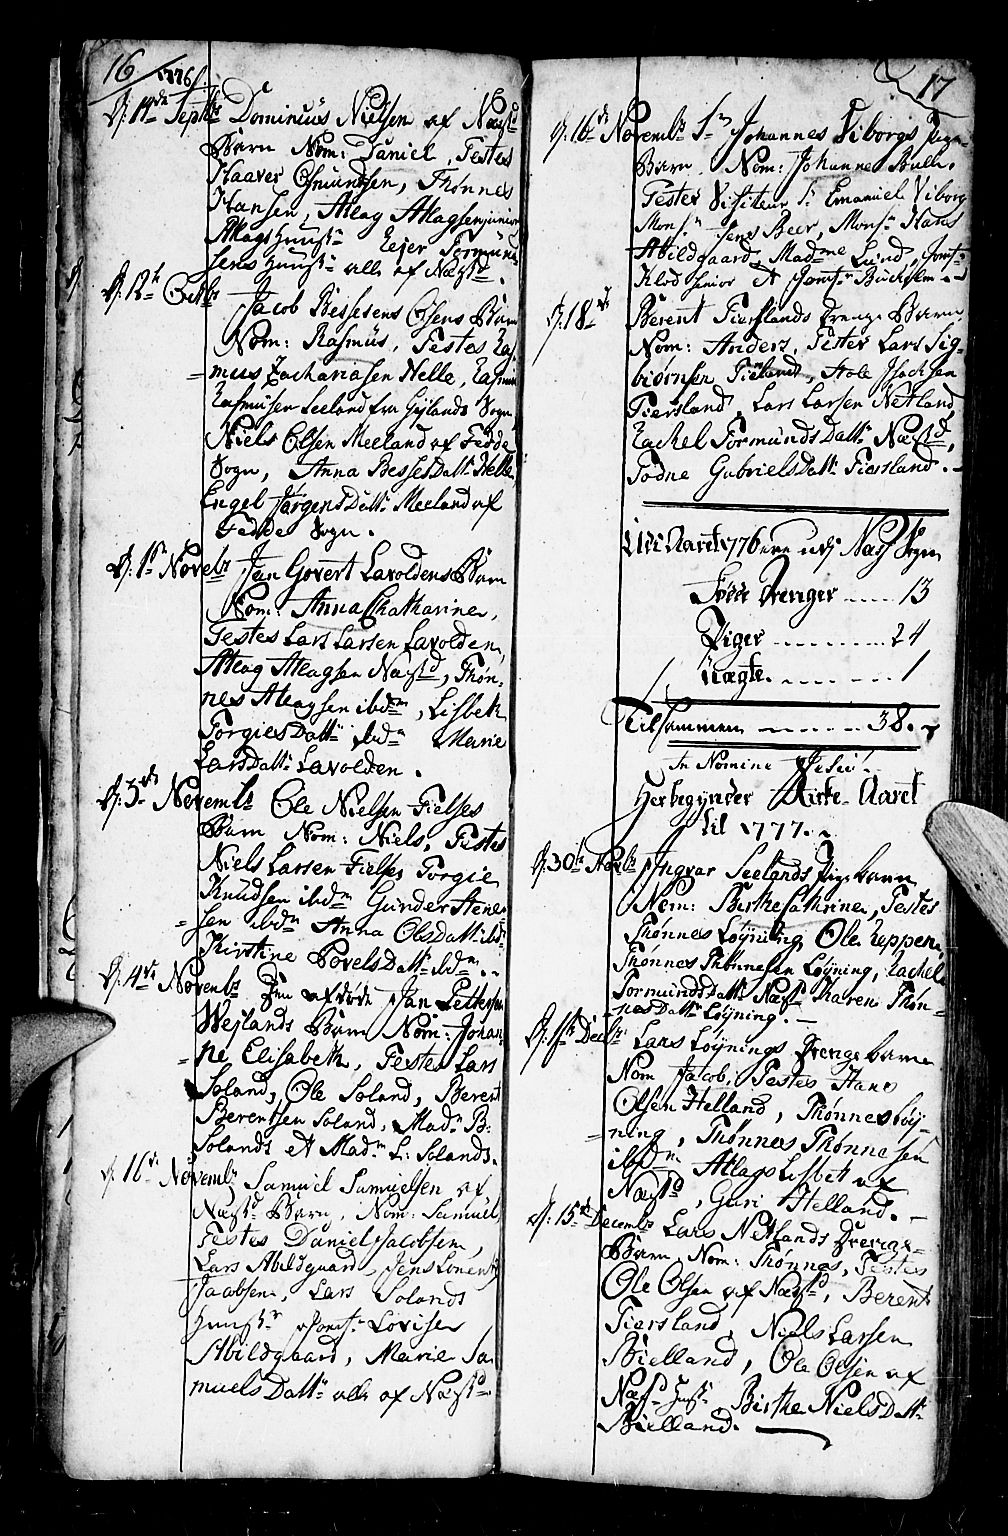 16
1776.
D. 14de Septbr Dominicus Nielsen af Næss
Barn Nom: Daniel, Testes
Haaver Osmundsen, Thønnes
Hansen, Atlag Atlagsen junior
Atlags Hust: Rejer Tormunds
sens Hust: alle af Næss.
D. 13de Octbr Jacob Bessesens Olsens Barn
Nom: Rasmus, Testes Ras
mus Zachariasen Helle, Rasmus
Rasmusen Seeland fra Gylands Sogn
Niels Olsen Meeland af Fedde
Sogn, Anna Besses Datt: Helle
Engel Jørgens Datt: Meeland af
Fedde Sogn.
D. 1ste Novbr Jan Govert Lavoldens Barn
Nom: Anna Chatharine,
Testes Lars Larsen Lavolden,
Atlag Atlagsen Næss, Thøn-
nes Atlagsen ibdm, Lisbeth
Torgies Datt: ibdm Marie
Lars Datt: Lavolden.
D. 3de Novembr Ole Nielsen Fielses
Barn Nom: Niels, Testes
Niels Larsen Fielse, Torgie
Knudsen ibdm Gunder Stene-
sen ibdm Anna Ols Datt: ibdm
Kirstine Povels Datt: ibdm.
D. 4de Novembr Den afdøde Jan Pettersen
Wejlands Barn Nom: Johan-
ne Elisabeth, Testes Lars
Soland, Ole Soland, Berent
Berentsen Soland, Madm B:
Solands et Madm L: Solands.
D. 16de Novembr Samuel Samuelsen af
Næss Barn, Nom: Samuel,
Testes Daniel Jacobsen,
Lars Abildgaard, Jens Lorentz
Jacobsen, Lars Solands
Hust: Jomfr: Lovise
Abildgaard, Marie Sa
muels Datt: alle af Næss.
17
D. 16de Novembr Sr Johannes Viborgs Pige-
Barn Nom: Johanne Bull.
Testes Visiteur Sr Emanuel Viborg
Monsr Jens Beer, Monsr Hans
Abildgaard, Madme Lund, Jomfr
Klod senior et Jomfr Buchholm.
D. 18de Berent Fierslands Drenge Barn,
Nom: Anders, Testes Lars Sig-
biørnsen Fieland, Atle Isachsen
Fiersland, Lars Larsen Netland,
Rachel Tormunds Datt: Næss,
Todne Gabriels Datt: Fiersland.
Udi Aaret 1776 ere udj Næss Sogn
Føde Drenger ..... 13
Piger ........... 24
Uægte. ....... 1
Tilsammen ....... 38.
In Nomine Jesu.
Her begynder Kirke-Aaret
til 1777.
D. 30te Novbr Ingvar Seelands Pigebarn
Nom: Birthe Cathrine, Testes
Thønnes Løyning, Ole Reppen,
Thønnes Thønnesen Løyning, Rachel
Tormunds Datt: Næss Karen Thøn-
nes Datt: Løyning.
D. 1ste Decbr: Lars Løynings Drengebarn
Nom Jacob, Testes Hans
Olsen Helland, Thønnes Løy-
ning, Thønnes Thønnesen
ibdm Atlags Lisbet af
Næss, Guri Helland.
D. 15de Decembr Lars Netlands Drenge-
Barn Nom: Thønnes, Testes
Ole Olsen af Næss, Berent
Fiersland, Niels Larsen
Bielland, Ole Olsen af
Næss Hust: Birthe Niels Datt:
Bielland.